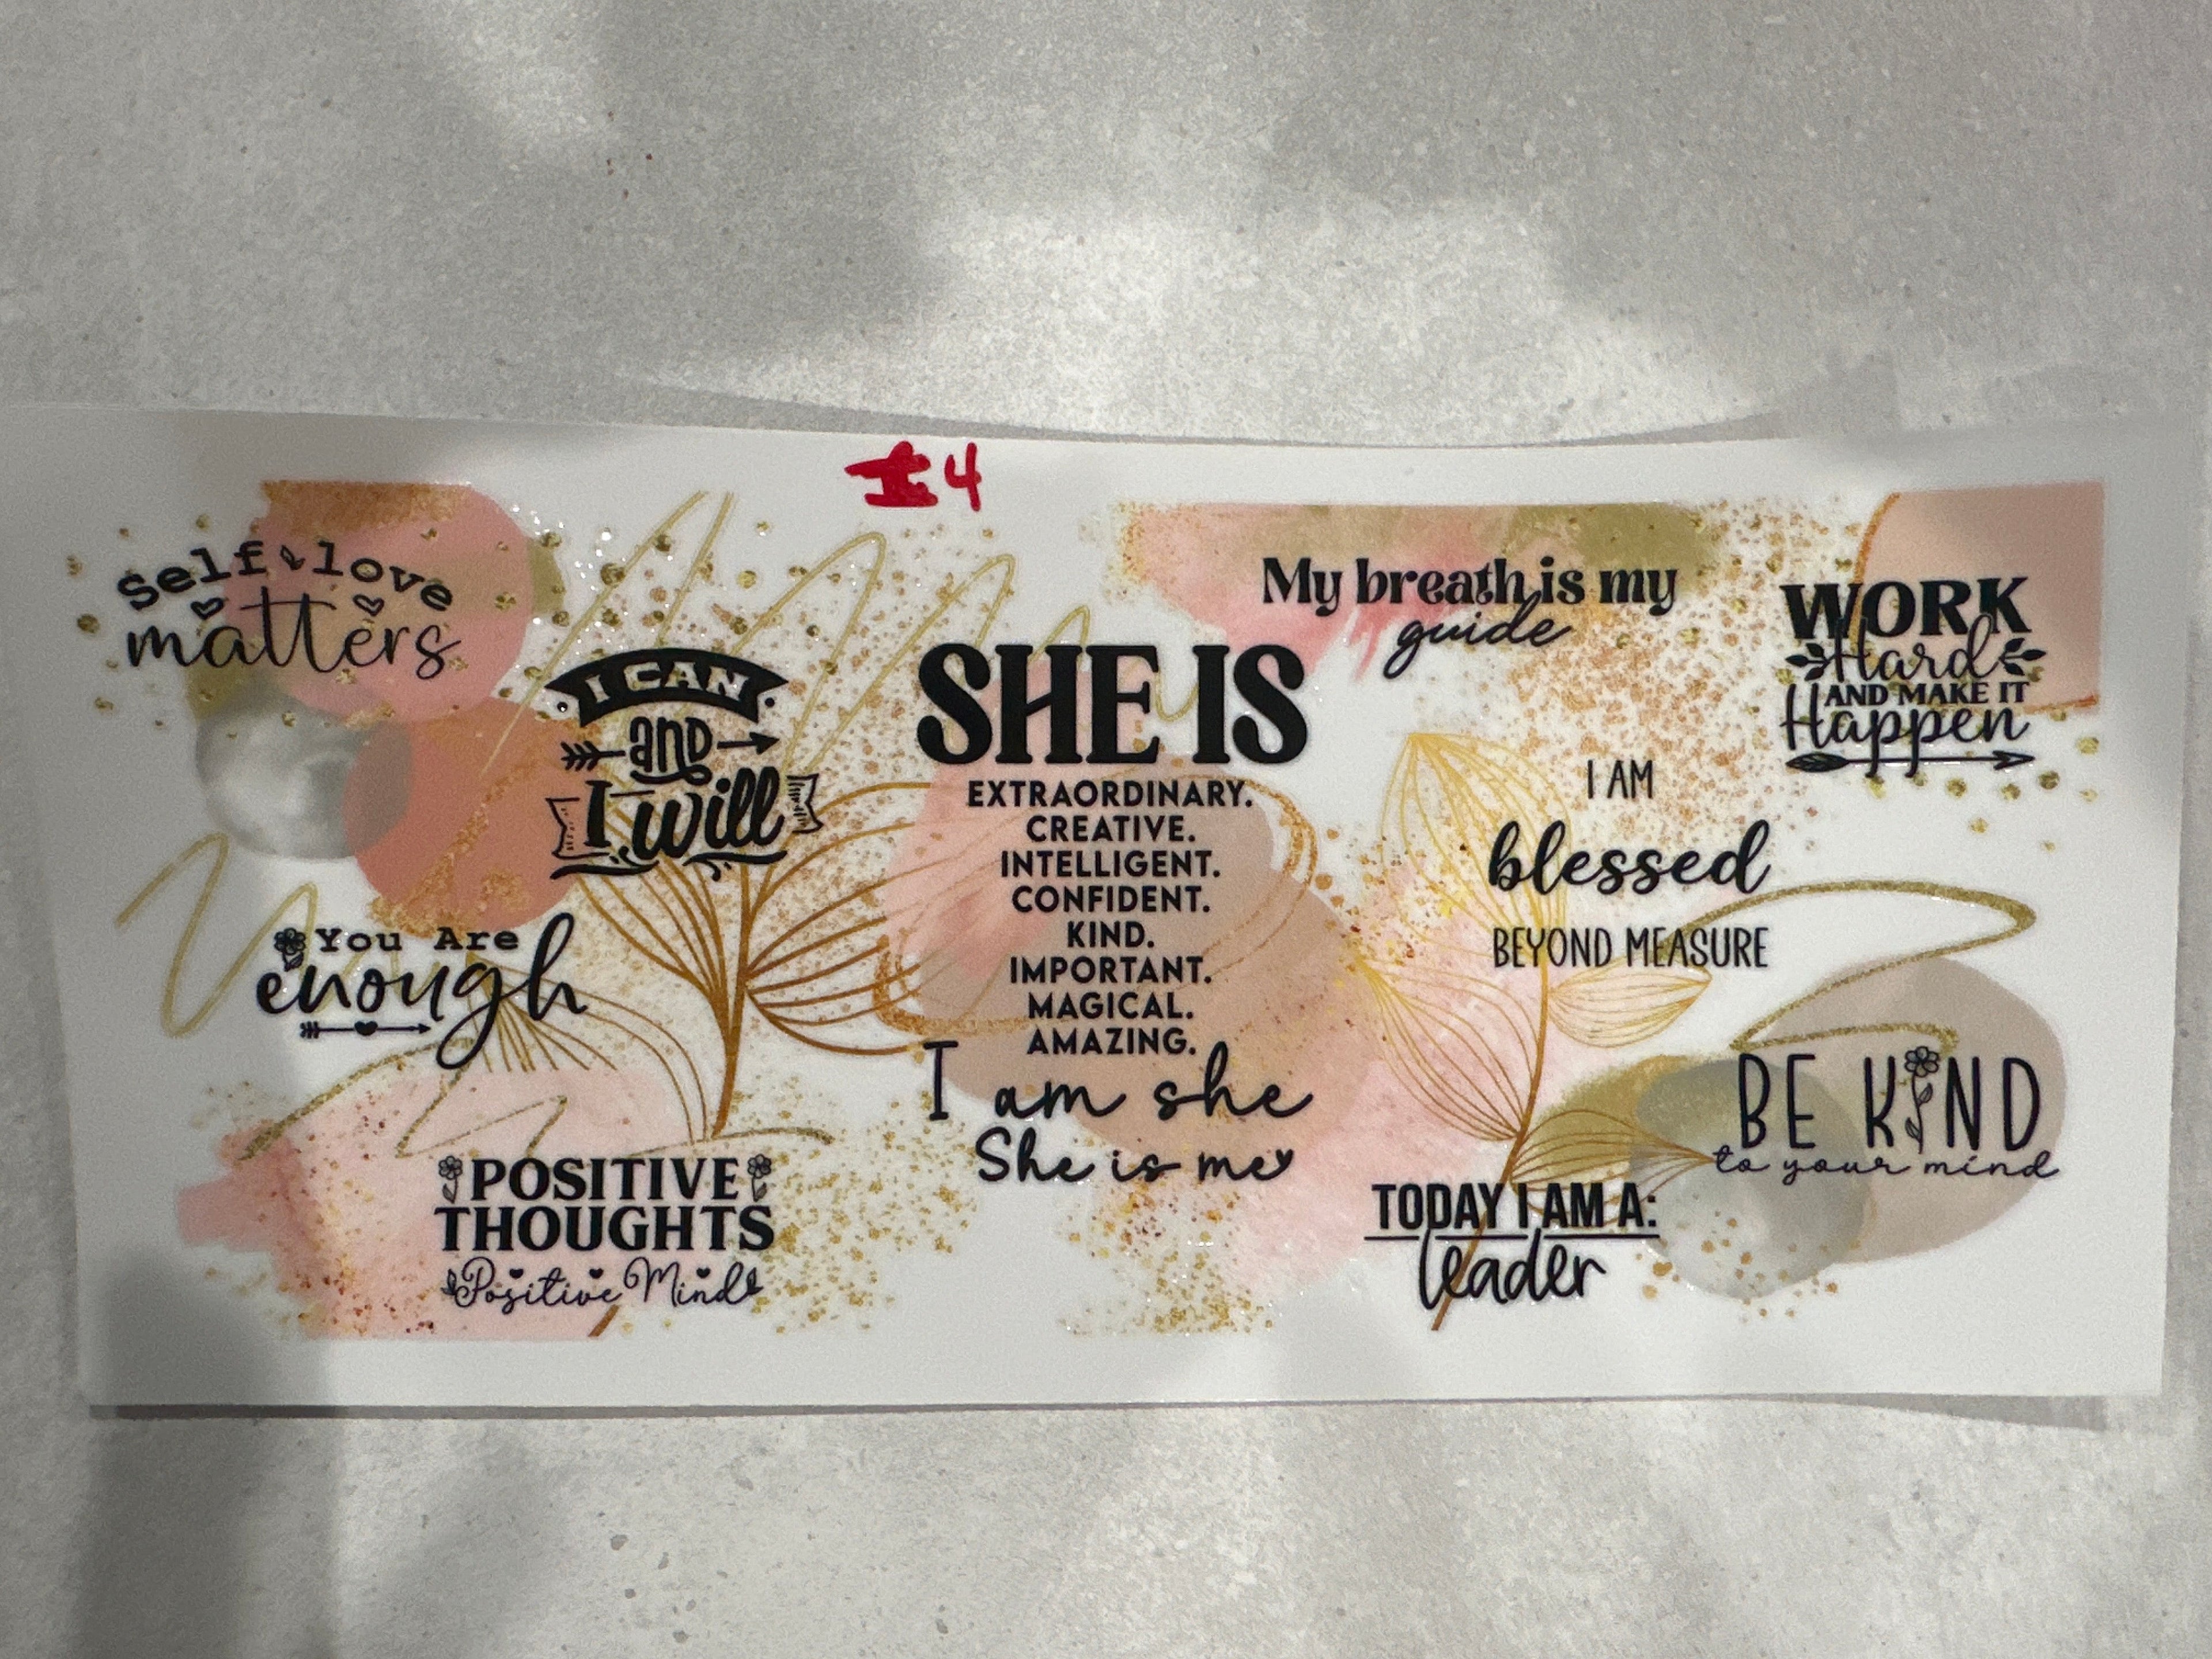 4
Self love
matters
I CAN
and
I will
You Are
enough
POSITIVE
THOUGHTS
Positive Mind
SHE IS
EXTRAORDINARY.
CREATIVE.
INTELLIGENT.
CONFIDENT.
KIND.
IMPORTANT.
MAGICAL.
AMAZING.
I am she
She is me
My breath is my
guide
WORK
Hard
AND MAKE IT
Happen
I AM
blessed
BEYOND MEASURE
BE KIND
to your mind
TODAY I AM A:
leader